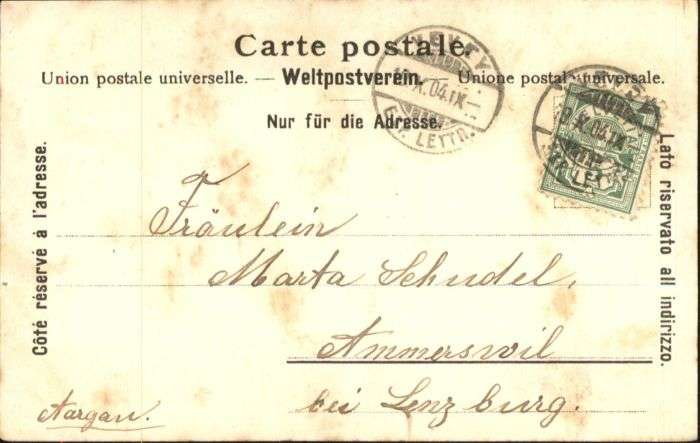 Carte postale.
Union postale universelle. — Weltpostverein. — Unione postale universale.
Nur für die Adresse.
Côté réservé à l'adresse.
Lato riservato all indirizzo.
VEVEY
X.04.IX
EX. LETTR.
X.04.IX
Fräulein
Marta Schudel,
Ammerswil
bei Lenzburg.
Aargau.